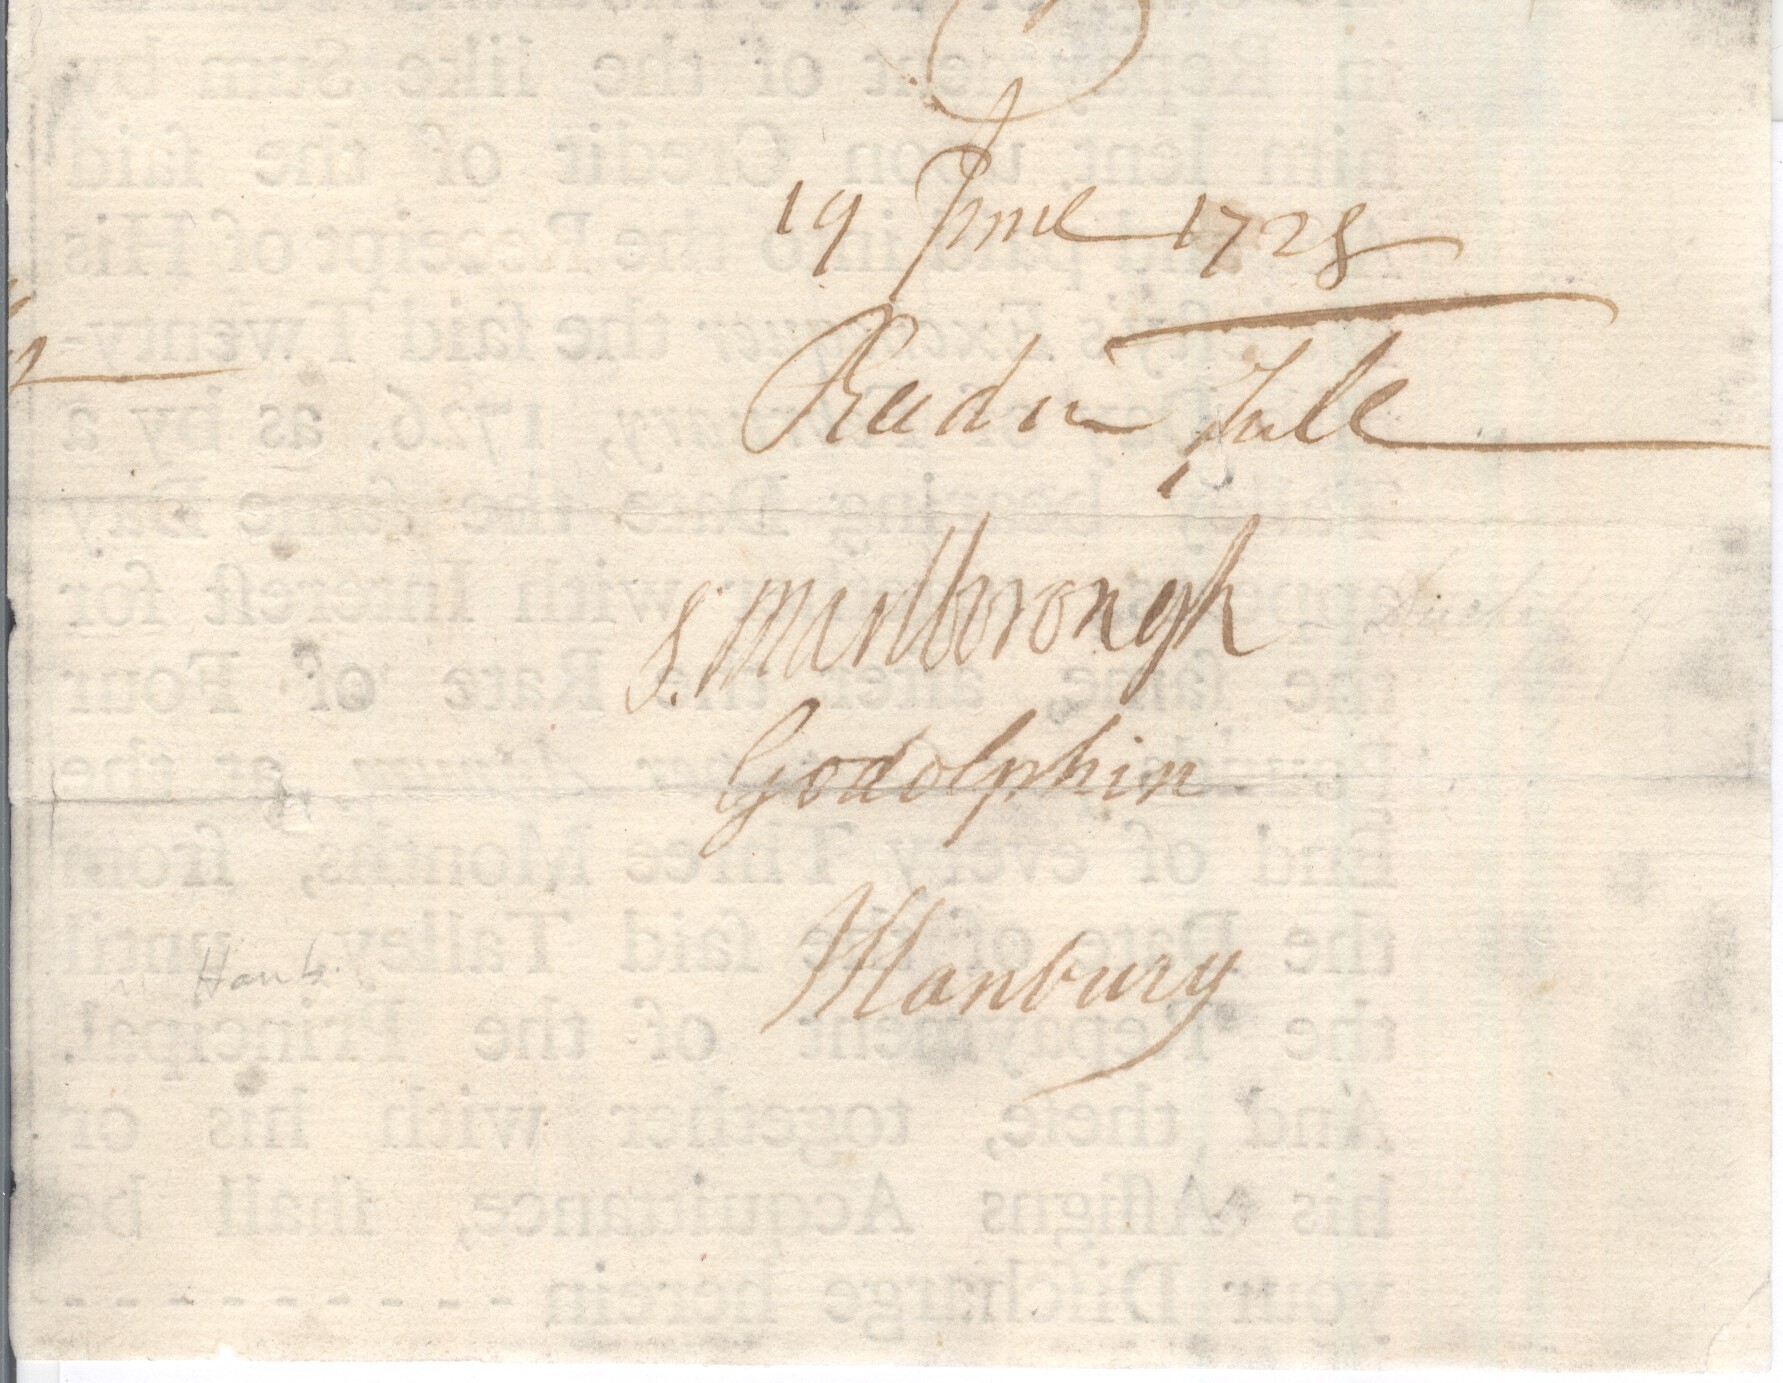 19 June 1728
Recd in full
S. Marlborough
Godolphin
WHanbury
Hanb
in Repayment of the like Sum by
him lent upon Credit of the ſaid
paid into the Receipt of His
Exchequer the ſaid Twenty-
1726. as by a
Tally bearing Date the ſame Day
with Intereſt for
the ſame, after the Rate of Four
at the
End of every Three Months, from
the Date of the ſaid Talley, until
the Repayment of the Principal.
And theſe, together with his or
his Aſſigns Acquittance, ſhall be
your Diſcharge herein